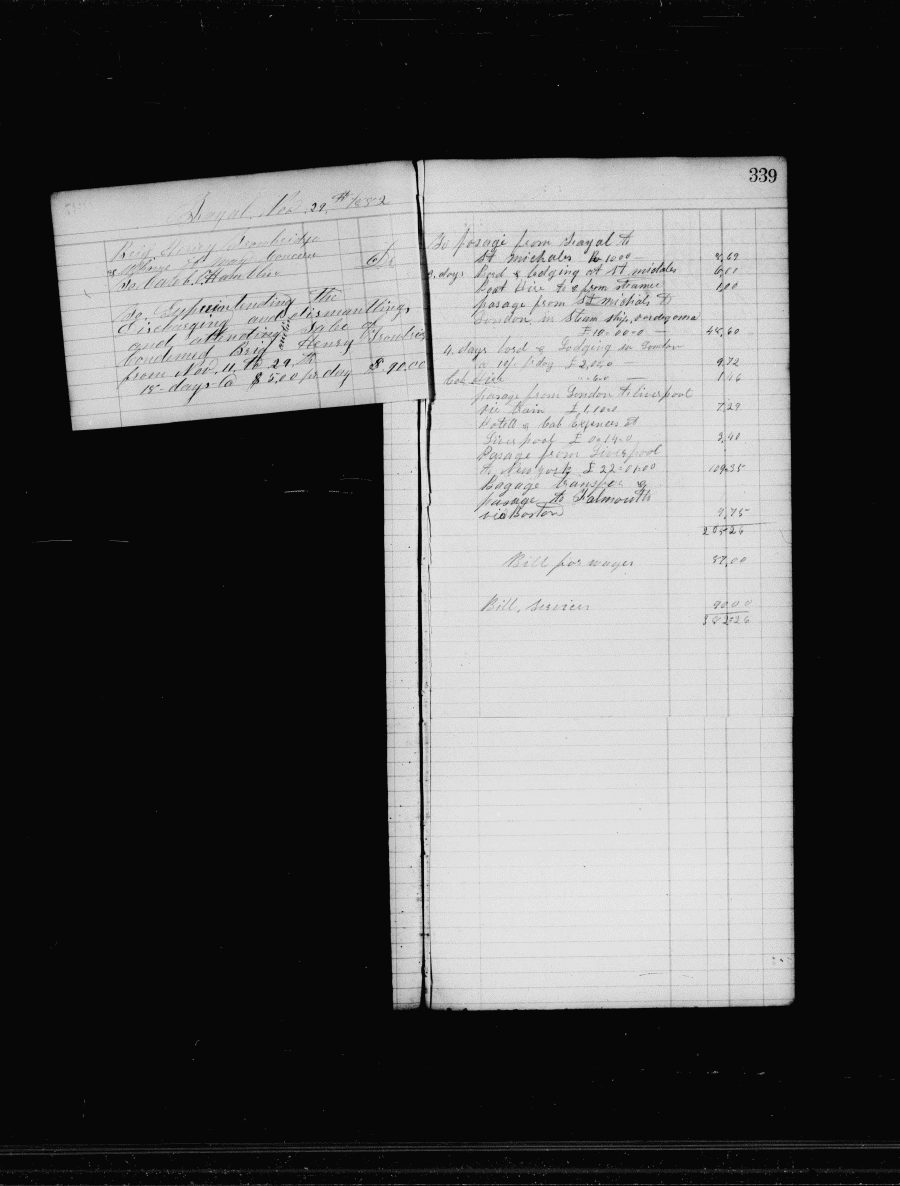 Fayal, Nov. 29th 1882
Brig Henry Trowbridge
& whome it may Concern
To Caleb C Hamblin Dr
To Superintending the
Discharging and dismantling,
and attending auction Sale of
Condemed Brig Henry Trowbridge
from Nov. 11 to 29th
18-days @ $5,00 per day $90.00
339
To pasage from Fayal to
St michales 10000 — 8,69
days Bord & lodging at St michales 6.00
Boat hire to & from steamer 1.00
pasage from St michals to
London in Steam ship
£10-00-0 — 48,60
4 days bord & Lodging in London
a 10/ p day £2,00.0 9.72
Cab hire — 1.46
pasage from London to Liverpool
via Train £1,10.0 7.29
Hotell & Cab Expences at
Liverpool £0-14-0 3.40
Pasage from Liverpool
to New york £22-0-00 109.35
Bagage transfer &
pasage to Falmouth
via Boston 9,75
205.26
Bill for wages 87.00
Bill, services 90.00
382.26